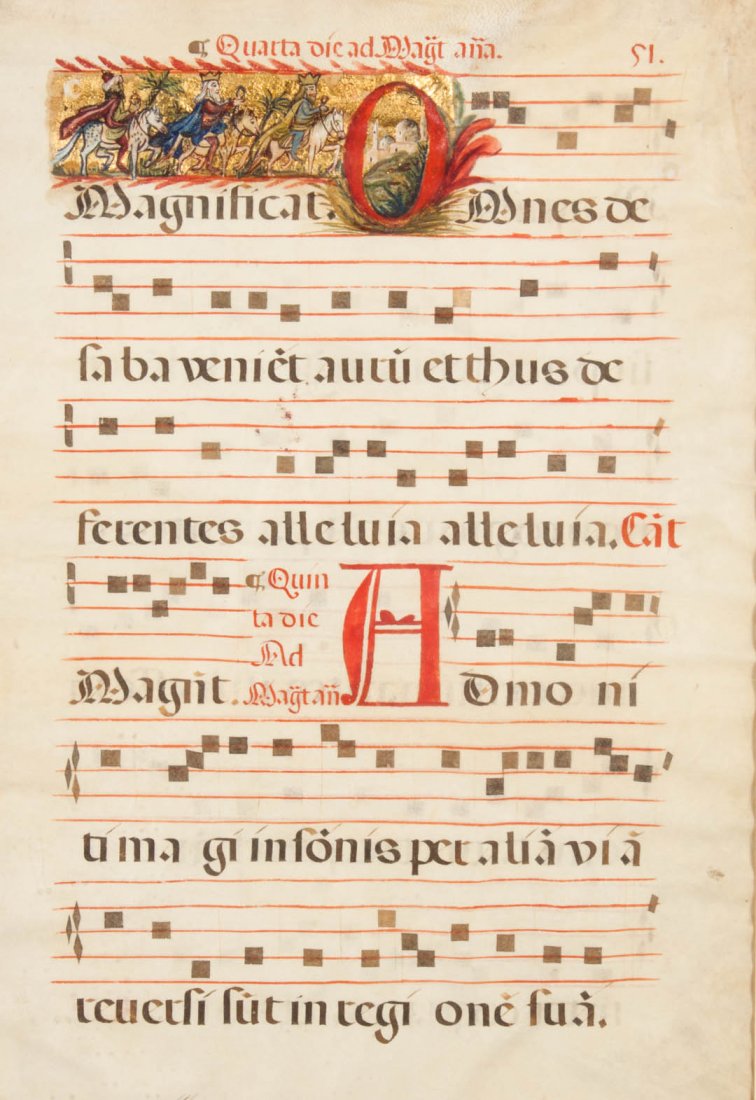 ¶ Quarta die ad Mag̃t aña. 51.
Magnificat. OMnes de
saba veniẽt aurũ et thus de
ferentes alleluia alleluia. Cãt
Magñt. ¶ Quin
ta die
Ad
Mag̃t añ ADmo ni
ti ma gi in sõnis per aliã viã
reversi sũt in regi onẽ suã.